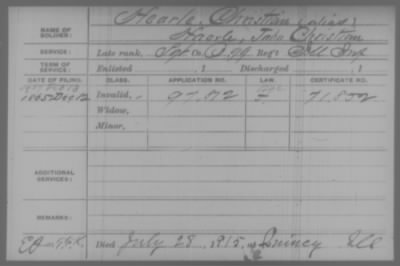 Hearle, Christian (alias)
NAME OF SOLDIER: Haerle, John Christian
SERVICE: Late rank, Sgt Co. G, 99 Reg't Ill Inf
TERM OF SERVICE: Enlisted , 1 Discharged , 1
DATE OF FILING. CLASS. APPLICATION NO. LAW. CERTIFICATE NO.
1865 Dec 12 Invalid, 97,072 71,852
Widow,
Minor,
ADDITIONAL SERVICES:
REMARKS:
Died July 28, 1915, at Quincy Ill